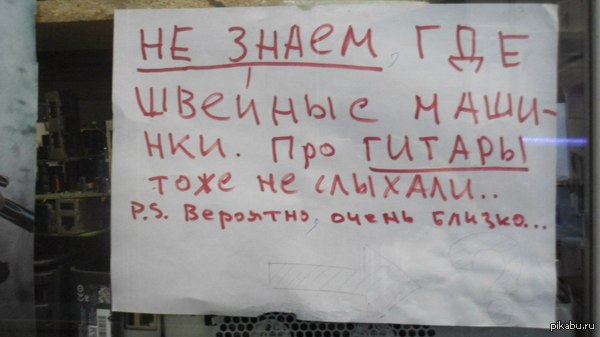 НЕ ЗНАЕМ, ГДЕ
ШВЕЙНЫЕ МАШИ-
НКИ. ПРО ГИТАРЫ
ТОЖЕ НЕ СЛЫХАЛИ..
P.S. Вероятно, очень близко...
pikabu.ru